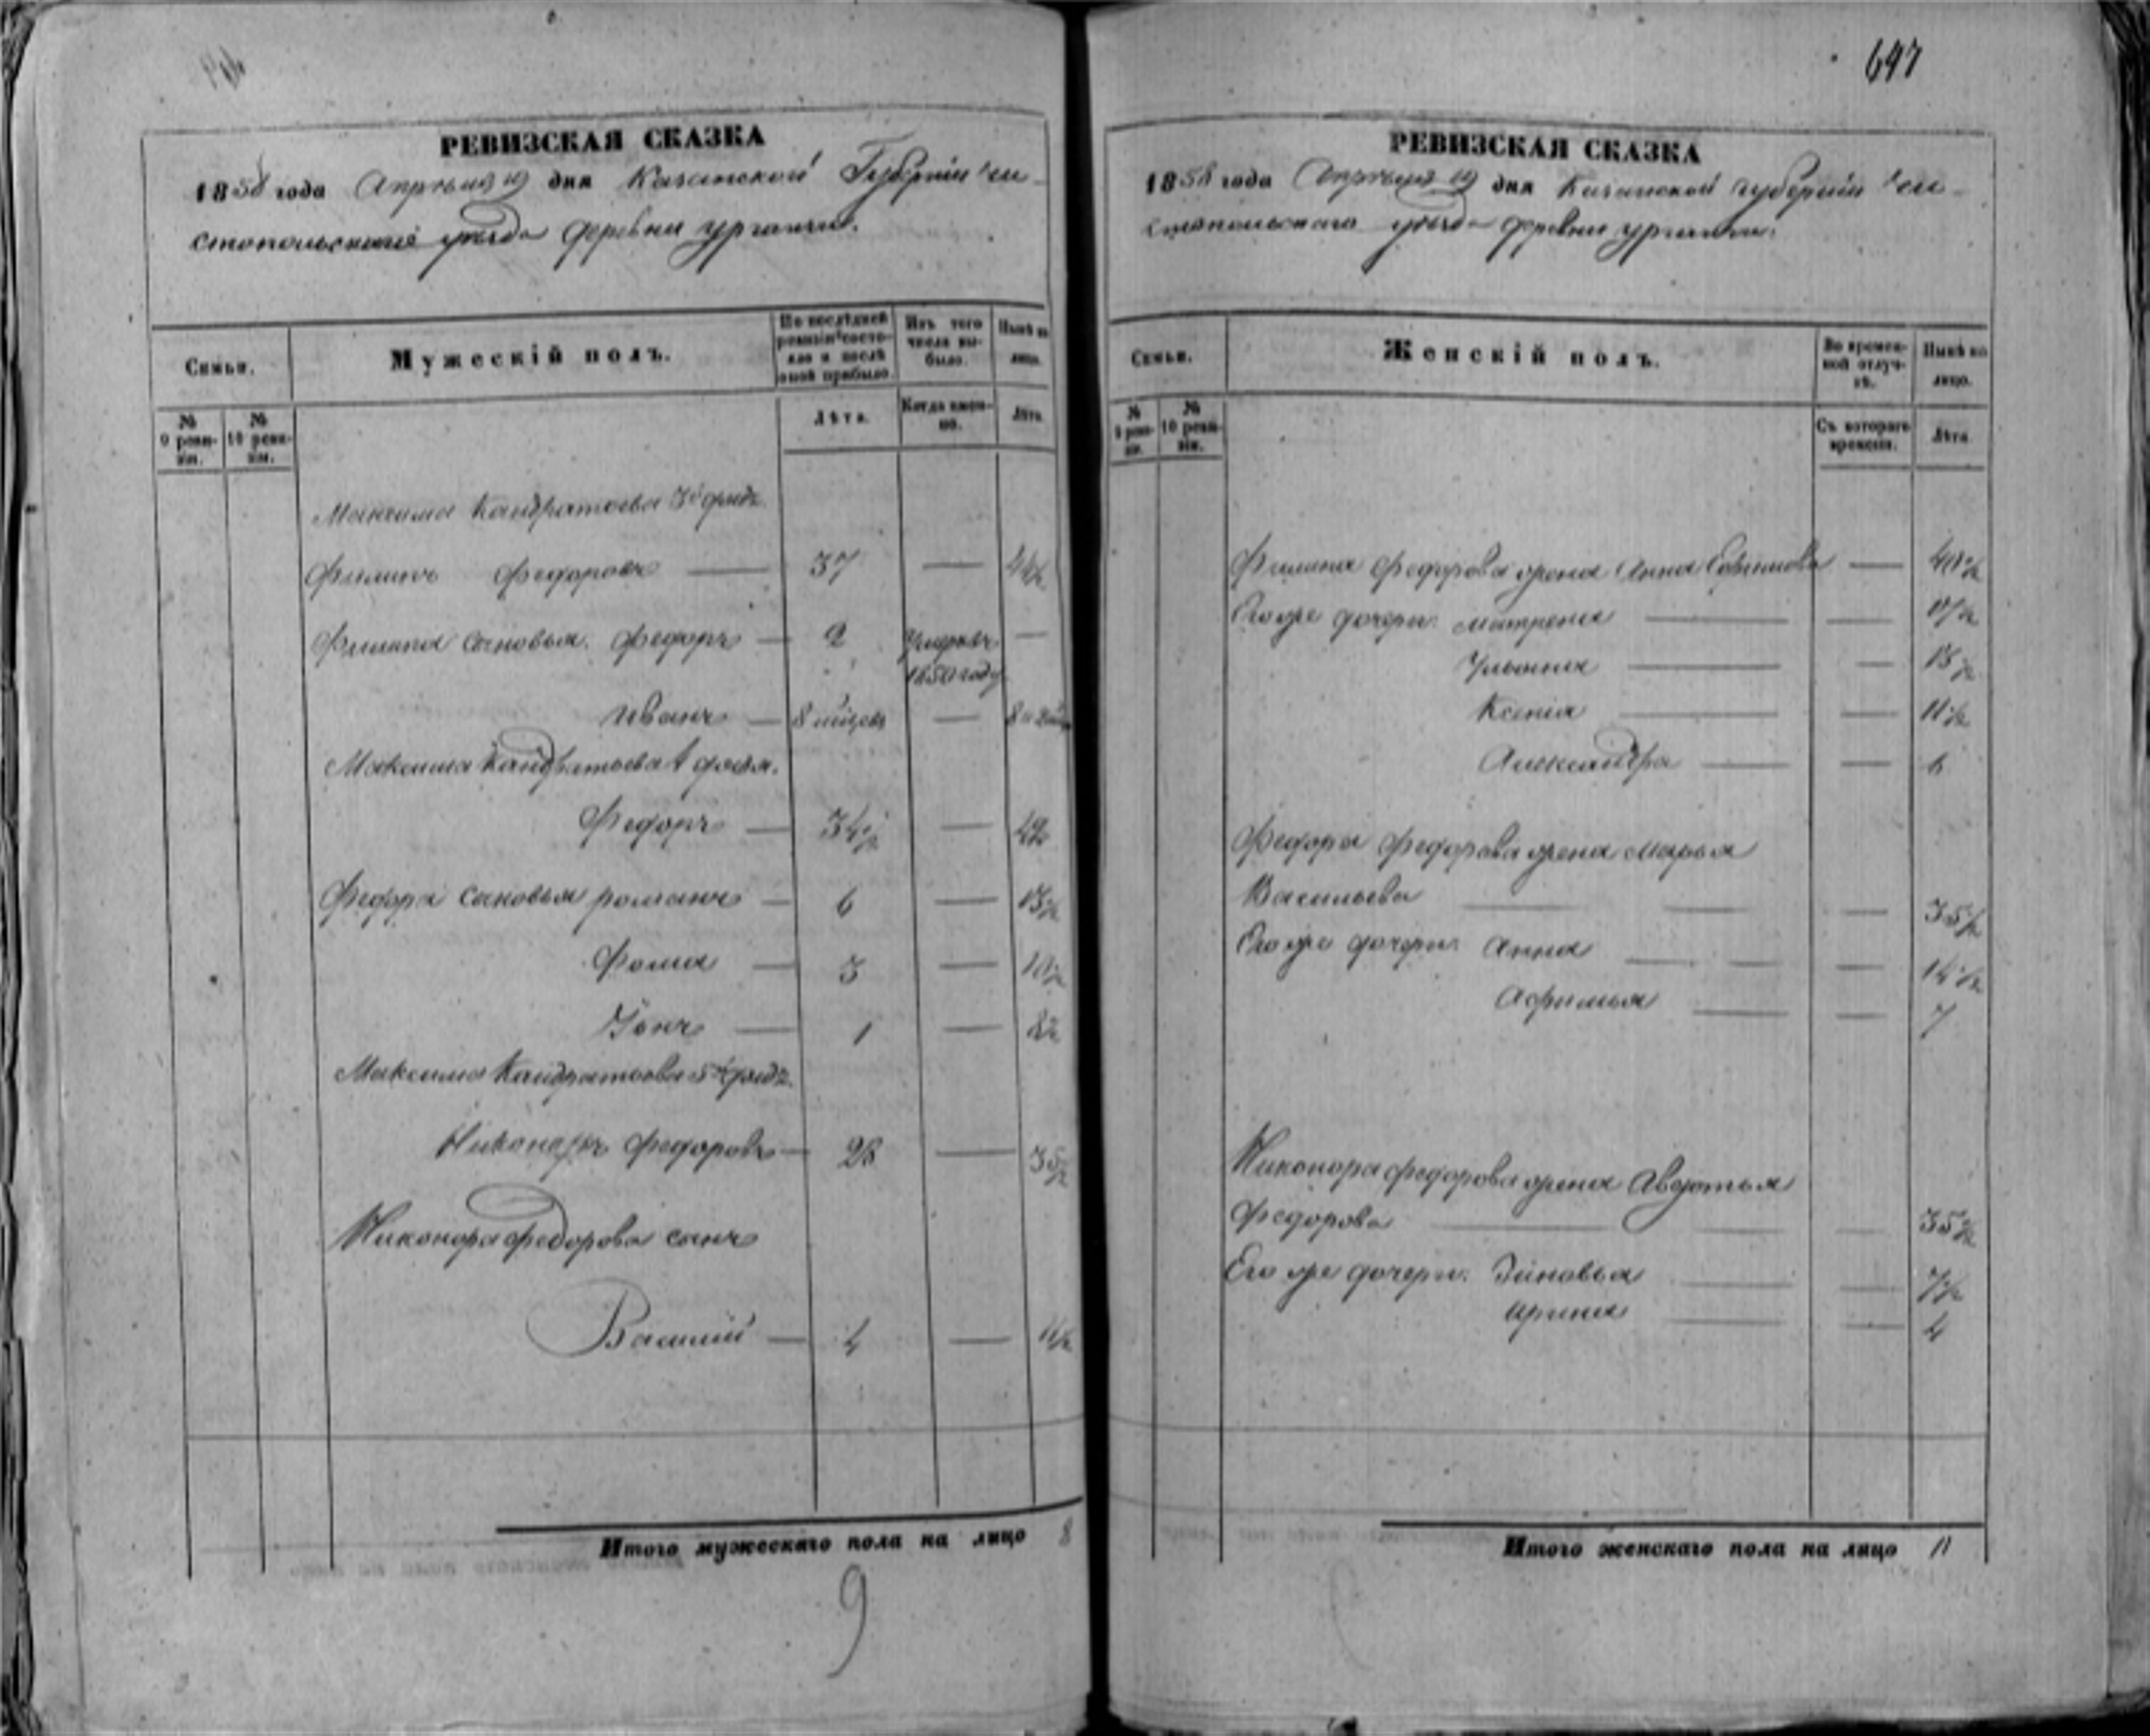 647
РЕВИЗСКАЯ СКАЗКА
1858 года Апрѣля 10 дня Казанской Губернiи Чи-
стопольскаго уѣзда деревни Урганчи.
Семьи.
Мужескiй полъ.
По послѣдней ревизiи состояло и послѣ оной прибыло.
Изъ того числа выбыло.
Нынѣ на лицо.
№ 9 реви-зiи.
№ 10 реви-зiи.
Лѣта.
Когда имен-но.
Лѣта.
Максима Кандратьева 3й
Филипъ Федоровъ — 37 — 44½
Филипа сыновья: Федоръ — 2 Умеръ въ —
1850 году
Иванъ — 8 —
Максима Кандратьева 4
Федоръ — 34½ — 42
Федора сыновья романъ — 6 — 13½
Фома — 3 — 10½
— 1 — 8½
Максима Кандратьева 5
Никоноръ Федоровъ — 28 — 35½
Никонора Федорова сынъ
Василiй — 4 — 11½
Итого мужескаго пола на лицо 8
9
РЕВИЗСКАЯ СКАЗКА
1858 года Апрѣля 10 дня Казанской губернiи Чи-
стопольскаго уѣзда деревни Урганчи.
Семьи.
Женскiй полъ.
Во времен-ной отлуч-кѣ.
Нынѣ на лицо.
№ 9 реви-зiи.
№ 10 реви-зiи.
Съ котораго времени.
Лѣта.
Филипа Федорова жена Анна Ефимова — 40½
Его же дочери: Матрена — — 17½
Ульяна — — 15½
Ксенiя — — 11½
Александра — — 6
Федора Федорова жена Марья
Васильева — — — 35½
Его же дочери: Анна — — — 14½
Афимья — — 7
Никонора Федорова жена Авдотья
Федорова — — — 35½
Его же дочери: Зиновья — — 7½
Ирина — — 4
Итого женскаго пола на лицо 11